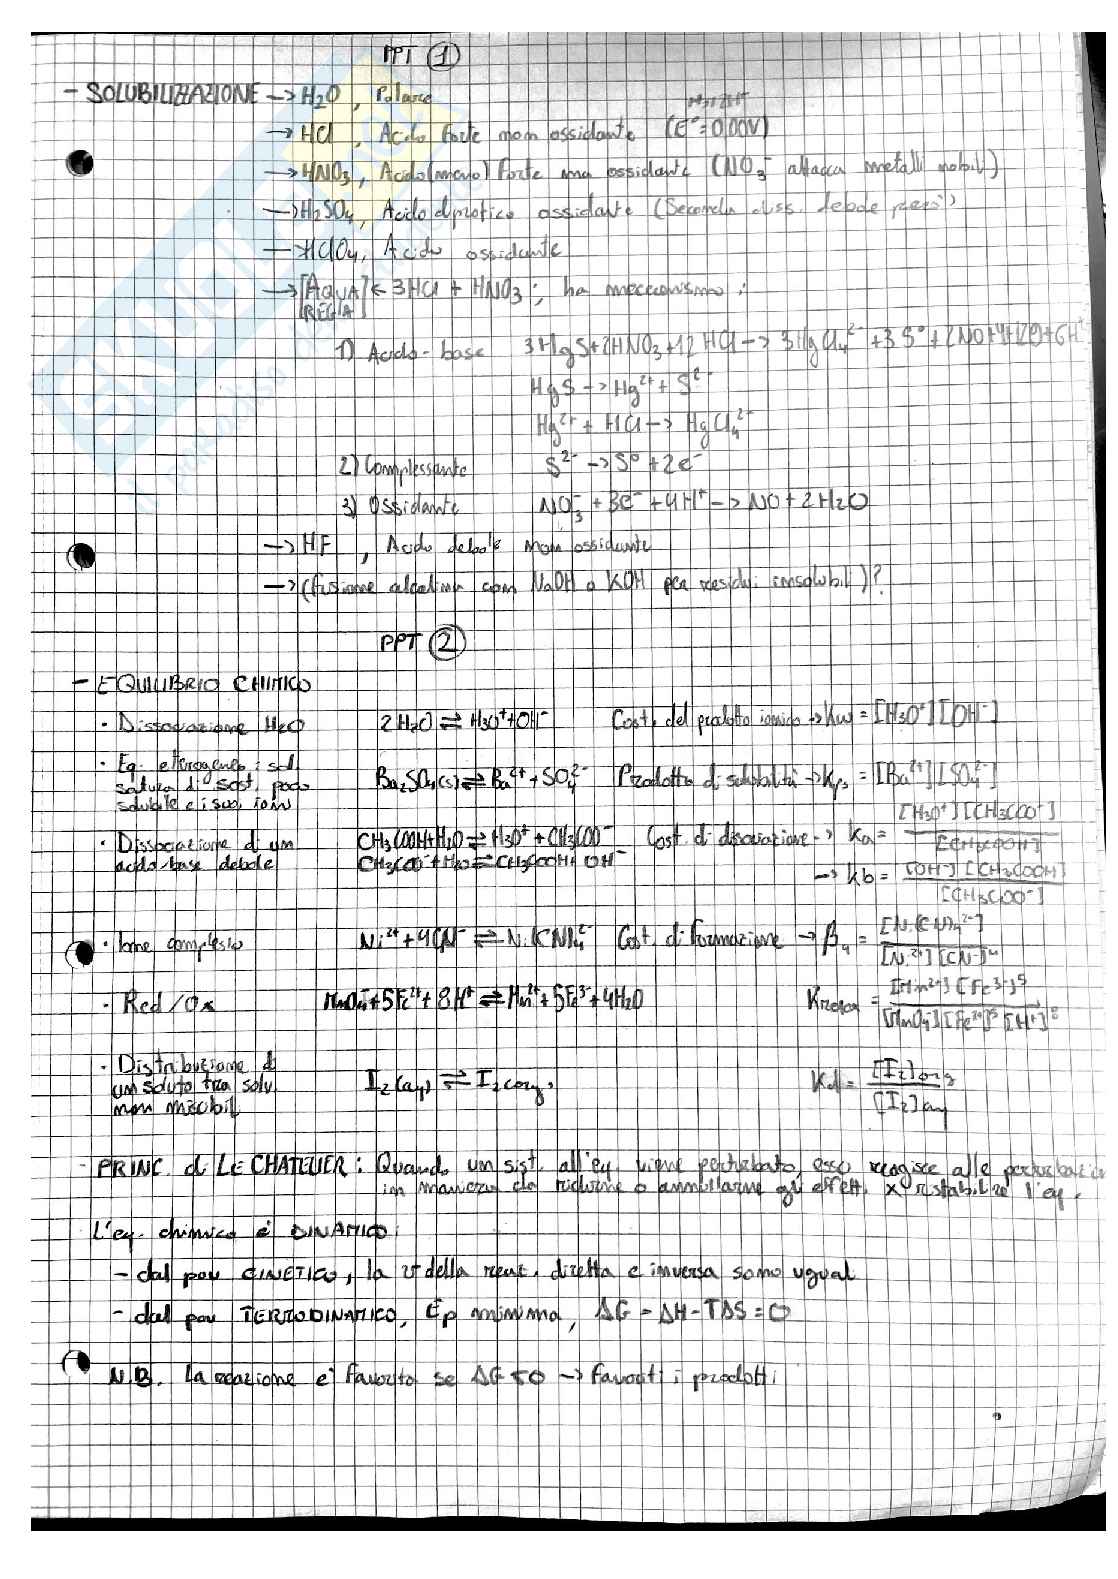 PPT 1
- SOLUBILIZZAZIONE → H₂O , Polare
→ HCl , Acido forte non ossidante (E° = 0,00V)
→ HNO₃, Acido (meno) Forte ma ossidante (NO₃⁻ attacca metalli nobili)
→ H₂SO₄, Acido diprotico ossidante (Seconda diss. debole però)
→ HClO₄, Acido ossidante
→ [AQUA REGIA] ← 3HCl + HNO₃ ; ha meccanismo :
1) Acido-base 3HgS+2HNO₃+12HCl → 3HgCl₄²⁻+3S°+2NO+4H2O+6H⁺
HgS → Hg²⁺ + S²⁻
Hg²⁺ + HCl → HgCl₄²⁻
2) Complessante S²⁻ → S° + 2e⁻
3) Ossidante NO₃⁻ + 3e⁻ + 4H⁺ → NO + 2H2O
→ HF , Acido debole non ossidante
→ (fusione alcalina con NaOH o KOH per residui insolubili)?
PPT 2
- EQUILIBRIO CHIMICO
· Dissociazione H₂O 2H₂O ⇌ H₃O⁺+OH⁻ Cost. del prodotto ionico → Kw = [H₃O⁺][OH⁻]
· Eq. eterogeneo : sol.
satura di sost. poco
solubile e i suoi ioni Ba₂SO₄(s) ⇌ Ba²⁺ + SO₄²⁻ Prodotto di solubilità → Kps = [Ba²⁺][SO₄²⁻]
· Dissociazione di un CH₃COOH+H₂O ⇌ H₃O⁺ + CH₃COO⁻ Cost. di dissociazione → Ka = [H₃O⁺][CH₃COO⁻] / [CH₃COOH]
acido/base debole CH₃COO⁻+H₂O ⇌ CH₃COOH + OH⁻ → Kb = [OH⁻][CH₃COOH] / [CH₃COO⁻]
· Ione complesso Ni²⁺ + 4CN⁻ ⇌ Ni(CN)₄²⁻ Cost. di formazione → β₄ = [Ni(CN)₄²⁻] / [Ni²⁺][CN⁻]⁴
· Red/Ox MnO₄⁻+5Fe²⁺+8H⁺ ⇌ Mn²⁺+5Fe³⁻+4H₂O Kredox = [Mn²⁺][Fe³⁻]⁵ / [MnO₄⁻][Fe²⁺]⁵[H⁺]⁸
· Distribuzione di
un soluto tra solv. I₂(aq) ⇌ I₂(org) Kd = [I₂]org / [I₂]aq
non miscibili
- PRINC. di LE CHATELIER : Quando un sist. all'eq. viene perturbato, esso reagisce alle perturbazioni
in maniera da ridurne o annullarne gli effetti x ristabilire l'eq.
L'eq. chimico è DINAMICO:
- dal pov CINETICO, la v della reaz. diretta e inversa sono uguali
- dal pov TERMODINAMICO, Ep minima, ΔG = ΔH-TΔS = 0
N.B. La reazione è favorita se ΔG<0 → favoriti i prodotti